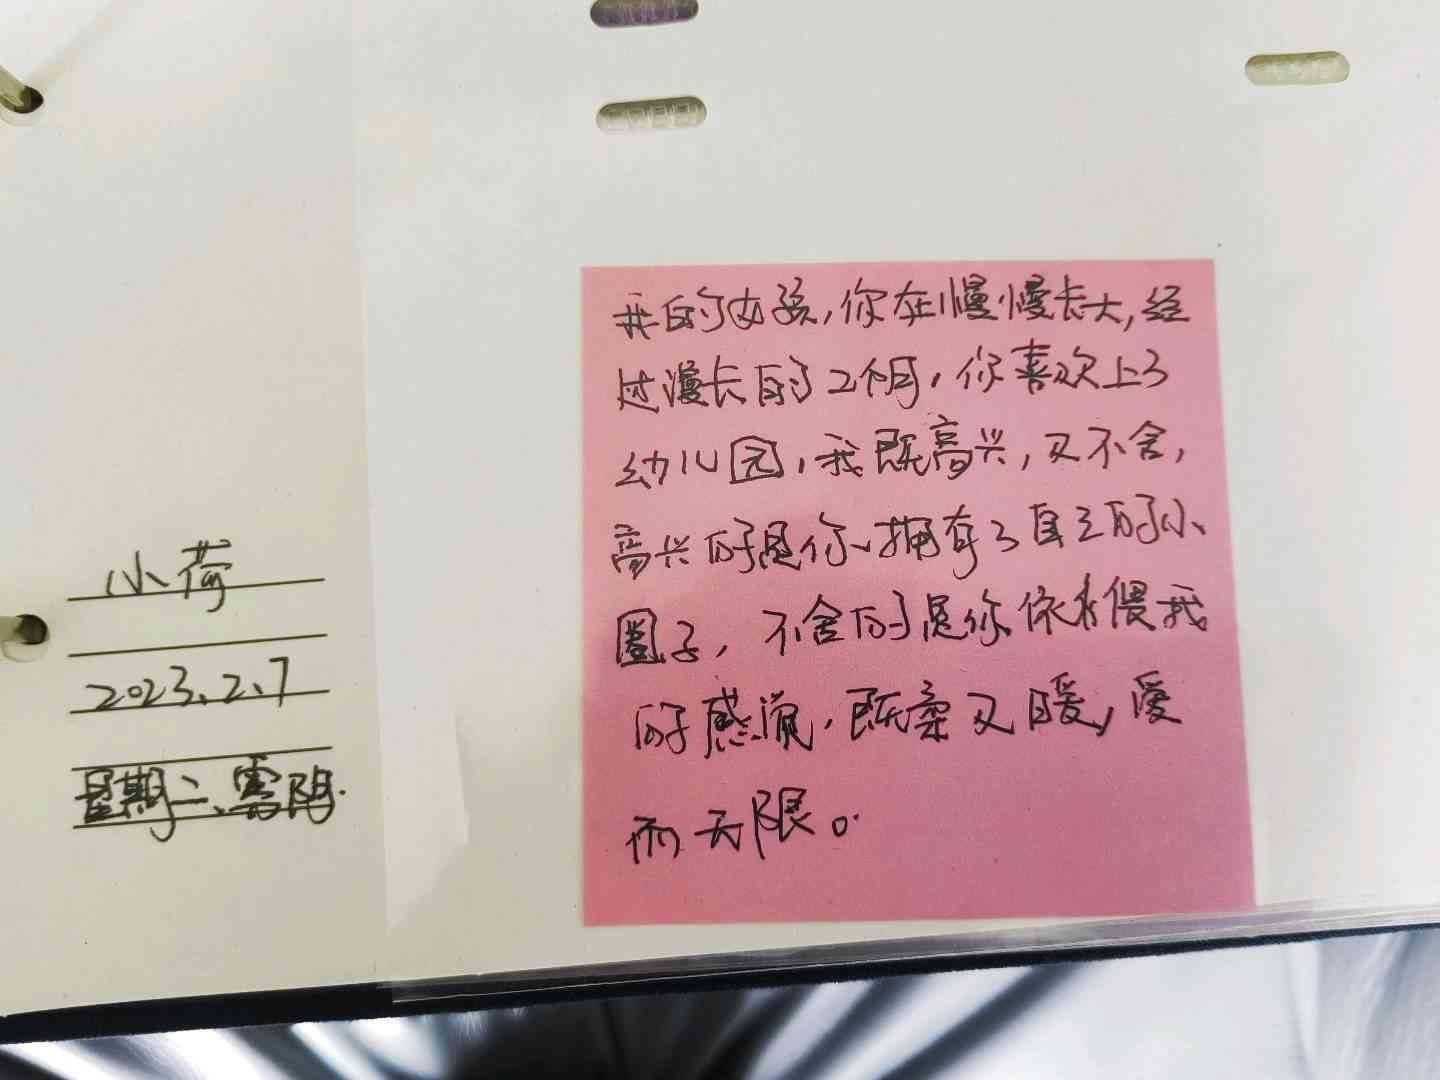 小荷
2023.2.7
星期二、雷阴.
我的女孩，你在慢慢长大，经
过漫长的2个月，你喜欢上了
幼儿园，我既高兴，又不舍，
高兴的是你拥有了自己的小
圈子，不舍的是你依偎我
的感觉，既柔又暖，爱
而无限。